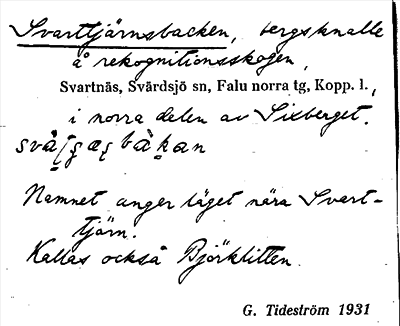 Svarttjärnsbacken, bergsknalle
å rekognitionsskogen,
Svartnäs, Svärdsjö sn, Falu norra tg, Kopp. l.,
i norra delen av Sixberget.
Namnet anger läget nära Svart-
tjärn.
Kallas också Björklitten.
G. Tideström 1931